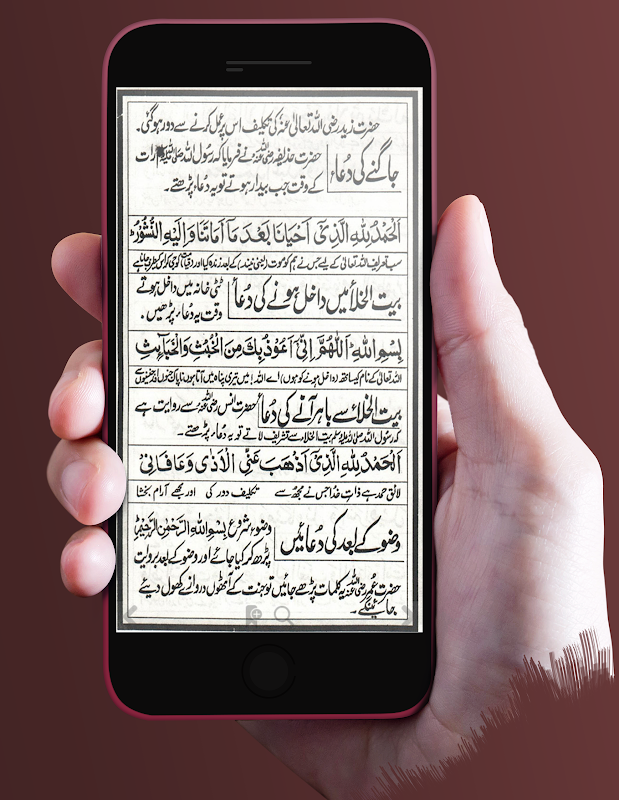 حضرت زید رضی اللہ تعالیٰ عنہ کی تکلیف اس پر عمل کرنے سے دور ہوگئی۔
جاگنے کی دُعاء
حضرت حذیفہ رضی اللہ عنہ نے فرمایا کہ رسول اللہ صلی اللہ علیہ وسلم رات
کے وقت جب بیدار ہوتے تو یہ دُعاء پڑھتے۔
اَلْحَمْدُ لِلّٰهِ الَّذِیْٓ اَحْیَانَا بَعْدَ مَآ اَمَاتَنَا وَاِلَیْهِ النُّشُوْرُ
سب تعریف اللہ تعالیٰ کے لیے جس نے ہم کو موت (یعنی نیند) کے بعد زندہ کیا اور
بیت الخلاء میں داخل ہونے کی دُعاء
ٹٹی خانہ میں داخل ہوتے
وقت یہ دُعاء پڑھیں۔
بِسْمِ اللّٰهِ اَللّٰهُمَّ اِنِّیْٓ اَعُوْذُ بِكَ مِنَ الْخُبُثِ وَالْخَبَآئِثِ
اللہ تعالیٰ کے نام کیساتھ (داخل ہونے کو ہوں) اے اللہ! میں تیری پناہ میں آتا ہوں ناپاک جنوں اور
بیت الخلاء سے باہر آنے کی دُعاء
حضرت انس رضی اللہ عنہ سے روایت ہے
کہ رسول اللہ صلی اللہ علیہ وسلم بیت الخلاء سے تشریف لاتے تو یہ دُعاء پڑھتے۔
اَلْحَمْدُ لِلّٰهِ الَّذِیْٓ اَذْهَبَ عَنِّی الْاَذٰی وَعَافَانِیْ
لائق حمد ہے ذات خدا جس نے مجھ سے تکلیف دور کی اور مجھے آرام بخشا
وضو کے بعد کی دُعائیں
وضوء شروع بِسْمِ اللّٰهِ الرَّحْمٰنِ الرَّحِیْمِ
پڑھ کر کیا جائے اور وضو کے بعد بروایت
حضرت عمر رضی اللہ عنہ یہ کلمات پڑھے جائیں تو جنت کے آٹھوں دروازے کھول دیئے
جائینگے۔